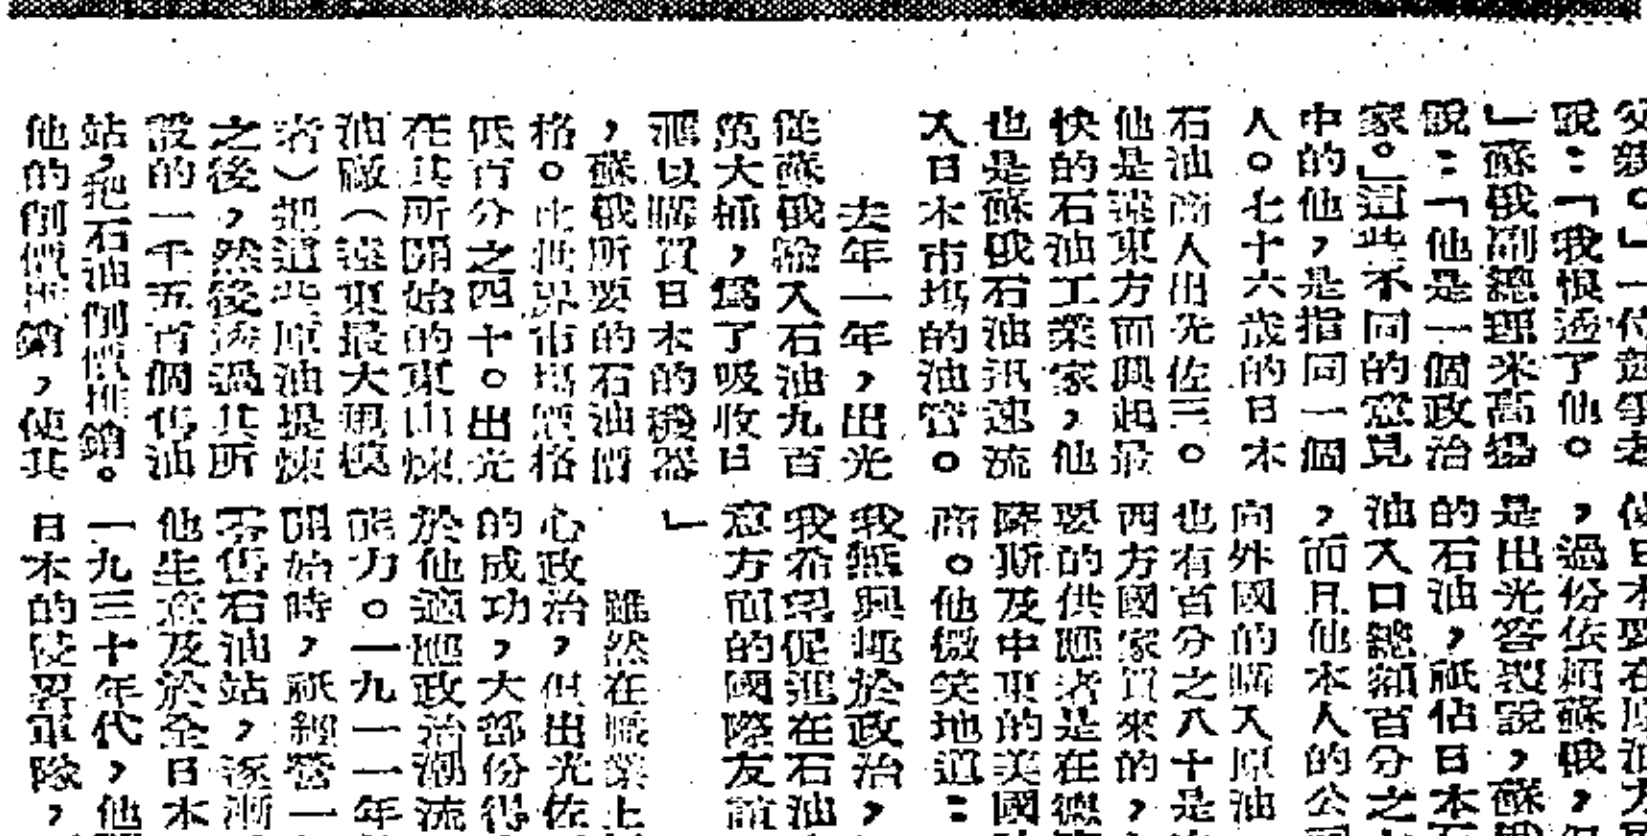 說：「我恨透了他。
」蘇俄副總理米高揚
說：「他是一個政治
家。」這些不同的意見
中的他，是指同一個
人。七十六歲的日本
石油商人出光佐三。
他是遠東方面興起最
快的石油工業家，他
也是蘇俄石油汎速流
入日本市場的油管。
去年一年，出光
從蘇俄輸入石油九百
萬大桶，為了吸收日
滙以購買日本的機器
，蘇俄所要的石油價
格。比世界市場價格
低百分之四十。出光
在其所開始的東山煉
油廠（遠東最大規模
者）把這些原油提煉
之後，然後透過其所
設的一千五百個售油
站，把石油削價推銷。
他的削價推銷，使其
，過份依賴蘇俄，
是出光答裂說，蘇
的石油，祇佔日本石
油入口總額百分之
，而且他本人的公
向外國的購入原油
也有百分之八十是
西方國家買來的，
要的供應者是在德
薩斯及中東的美國
商。他微笑地道：
我無興趣於政治，
我希望促進在石油
意方面的國際友誼
」
雖然在職業上
心政治，但出光佐
的成功，大部份得
於他適應政治潮流
能力。一九一一年
開始時，祇經營一
零售石油站，逐漸
他生意及於全日本
一九三十年代，他
日本的侵畧軍隊，